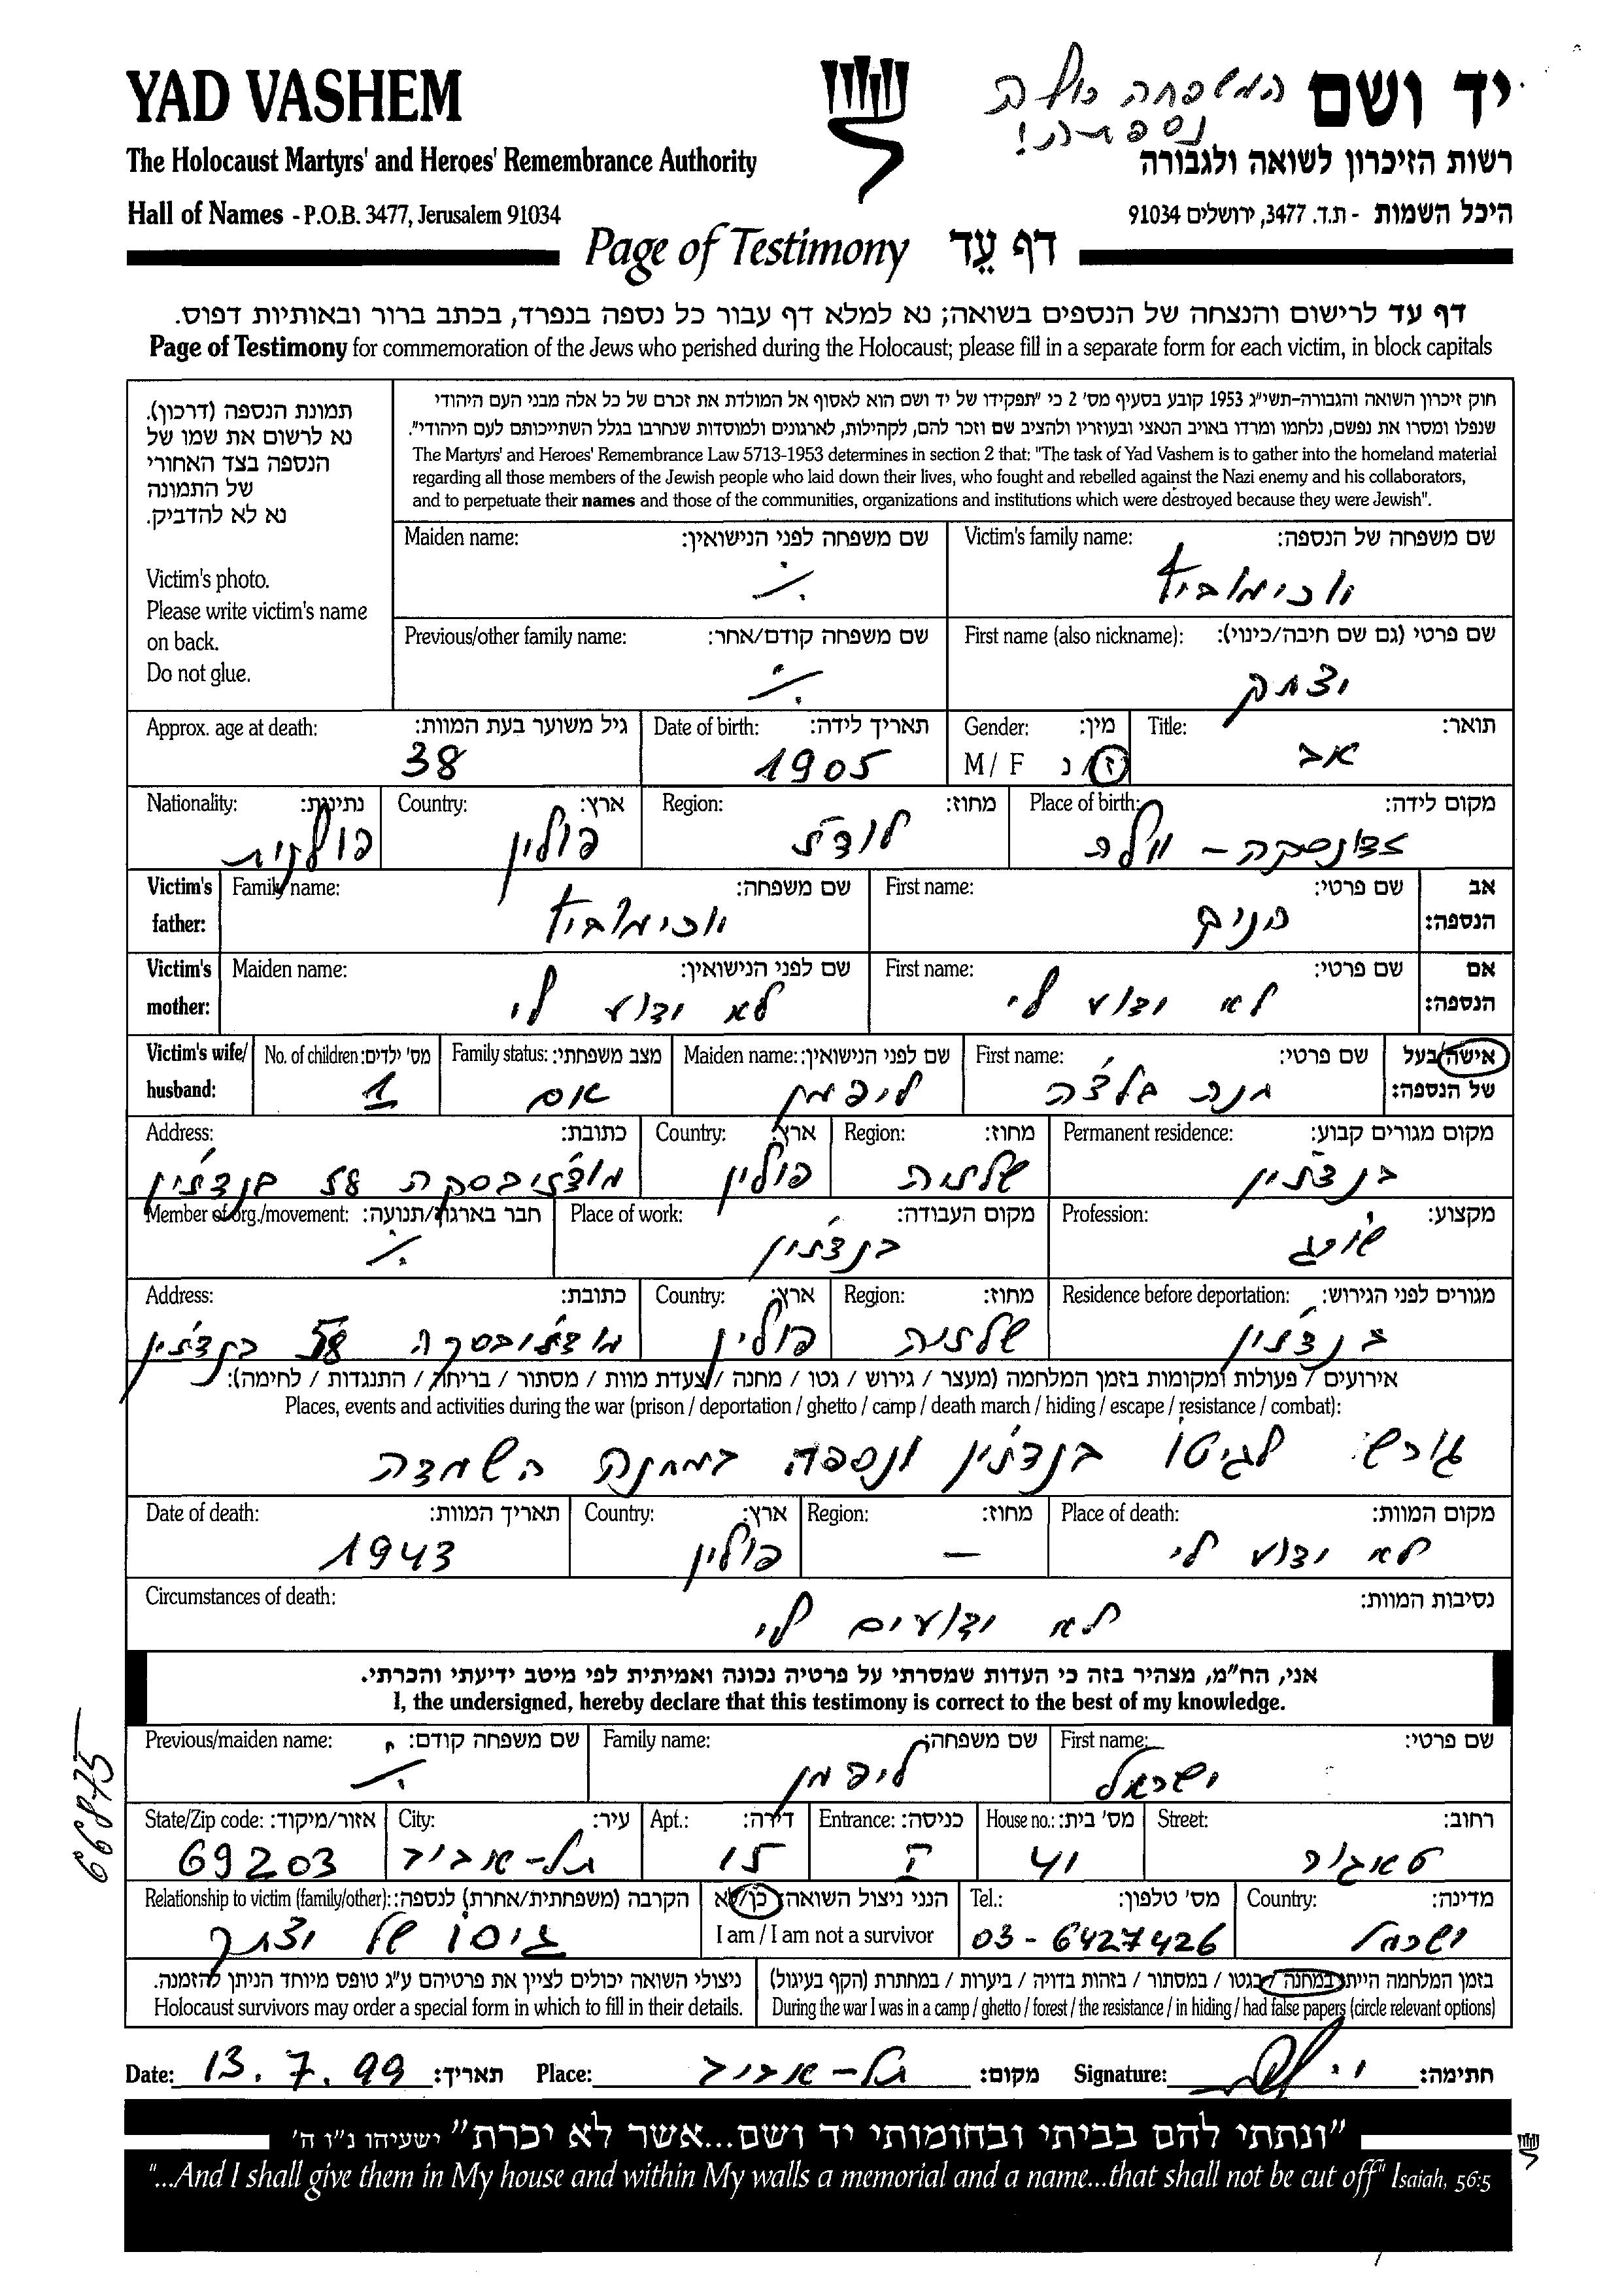 YAD VASHEM
The Holocaust Martyrs' and Heroes' Remembrance Authority
Hall of Names - P.O.B. 3477, Jerusalem 91034
המשפחה כולה
נספתה!
יד ושם
רשות הזיכרון לשואה ולגבורה
היכל השמות - ת.ד. 3477, ירושלים 91034
Page of Testimony דף עֵד
דף עד לרישום והנצחה של הנספים בשואה; נא למלא דף עבור כל נספה בנפרד, בכתב ברור ובאותיות דפוס.
Page of Testimony for commemoration of the Jews who perished during the Holocaust; please fill in a separate form for each victim, in block capitals
תמונת הנספה (דרכון).
נא לרשום את שמו של
הנספה בצד האחורי
של התמונה
נא לא להדביק.
Victim's photo.
Please write victim's name
on back.
Do not glue.
חוק זיכרון השואה והגבורה-תשי"ג 1953 קובע בסעיף מס' 2 כי "תפקידו של יד ושם הוא לאסוף אל המולדת את זכרם של כל אלה מבני העם היהודי
שנפלו ומסרו את נפשם, נלחמו ומרדו באויב הנאצי ובעוזריו ולהציב שם וזכר להם, לקהילות, לארגונים ולמוסדות שנחרבו בגלל השתייכותם לעם היהודי".
The Martyrs' and Heroes' Remembrance Law 5713-1953 determines in section 2 that: "The task of Yad Vashem is to gather into the homeland material
regarding all those members of the Jewish people who laid down their lives, who fought and rebelled against the Nazi enemy and his collaborators,
and to perpetuate their names and those of the communities, organizations and institutions which were destroyed because they were Jewish".
Victim's family name: שם משפחה של הנספה:
Maiden name: שם משפחה לפני הנישואין:
./.
First name (also nickname): שם פרטי (גם שם חיבה/כינוי):
יצחק
Previous/other family name: שם משפחה קודם/אחר:
./.
Title: תואר:
אב
Gender: מין:
M / F ז / נ
Date of birth: תאריך לידה:
1905
Approx. age at death: גיל משוער בעת המוות:
38
Place of birth: מקום לידה:
זדונסקה - וולה
Region: מחוז:
לודז'
Country: ארץ:
פולין
Nationality: נתינות:
פולנית
Victim's father: אב הנספה:
First name: שם פרטי:
Family name: שם משפחה:
Victim's mother: אם הנספה:
First name: שם פרטי:
לא ידוע לי
Maiden name: שם לפני הנישואין:
לא ידוע לי
Victim's wife/ husband: אישה/בעל של הנספה:
First name: שם פרטי:
חנה
Maiden name: שם לפני הנישואין:
ליפמן
Family status: מצב משפחתי:
No. of children: מס' ילדים:
1
Permanent residence: מקום מגורים קבוע:
בנדz'ין
Region: מחוז:
שלזיה
Country: ארץ:
פולין
Address: כתובת:
58 בנדז'ין
Profession: מקצוע:
Place of work: מקום העבודה:
בנדז'ין
Member of org./movement: חבר בארגון/תנועה:
./.
Residence before deportation: מגורים לפני הגירוש:
בנדז'ין
Region: מחוז:
שלזיה
Country: ארץ:
פולין
Address: כתובת:
58 בנדז'ין
אירועים / פעולות ומקומות בזמן המלחמה (מעצר / גירוש / גטו / מחנה / צעדת מוות / מסתור / בריחה / התנגדות / לחימה):
Places, events and activities during the war (prison / deportation / ghetto / camp / death march / hiding / escape / resistance / combat):
גורש לגיטו בנדז'ין ונספה במחנה השמדה
Place of death: מקום המוות:
לא ידוע לי
Region: מחוז:
—
Country: ארץ:
פולין
Date of death: תאריך המוות:
1943
Circumstances of death: נסיבות המוות:
לא ידועים לי
אני, הח"מ, מצהיר בזה כי העדות שמסרתי על פרטיה נכונה ואמיתית לפי מיטב ידיעתי והכרתי.
I, the undersigned, hereby declare that this testimony is correct to the best of my knowledge.
66875
First name: שם פרטי:
ישראל
Family name: שם משפחה:
ליפמן
Previous/maiden name: שם משפחה קודם:
./.
Street: רחוב:
טאגור
House no.: מס' בית:
41
Entrance: כניסה:
ה
Apt.: דירה:
15
City: עיר:
תל-אביב
State/Zip code: אזור/מיקוד:
69203
Country: מדינה:
ישראל
Tel.: מס' טלפון:
03-6427426
הנני ניצול השואה: כן/לא
I am / I am not a survivor
Relationship to victim (family/other): הקרבה (משפחתית/אחרת) לנספה:
גיסו של יצחק
בזמן המלחמה הייתי במחנה / בגטו / במסתור / בזהות בדויה / ביערות / במחתרת (הקף בעיגול)
During the war I was in a camp / ghetto / forest / the resistance / in hiding / had false papers (circle relevant options)
ניצולי השואה יכולים לציין את פרטיהם ע"ג טופס מיוחד הניתן להזמנה.
Holocaust survivors may order a special form in which to fill in their details.
Date: 13.7.99 תאריך: Place: תל-אביב מקום: Signature: חתימה:
"ונתתי להם בביתי ובחומותי יד ושם...אשר לא יכרת" ישעיהו נ"ו ה'
"...And I shall give them in My house and within My walls a memorial and a name...that shall not be cut off" Isaiah, 56:5